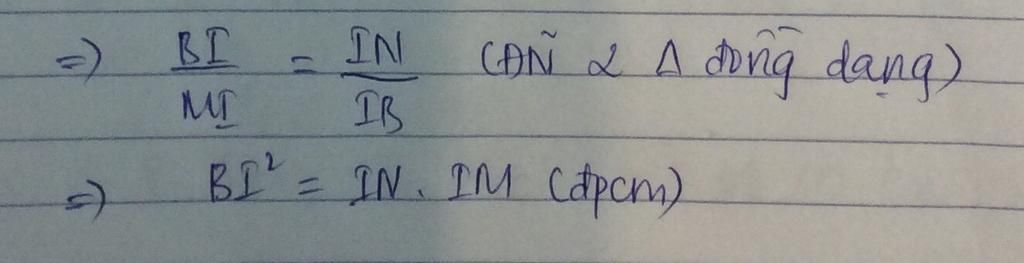 => BI/MI = IN/IB (ĐN 2 Δ đồng dạng)
=> BI² = IN. IM (đpcm)